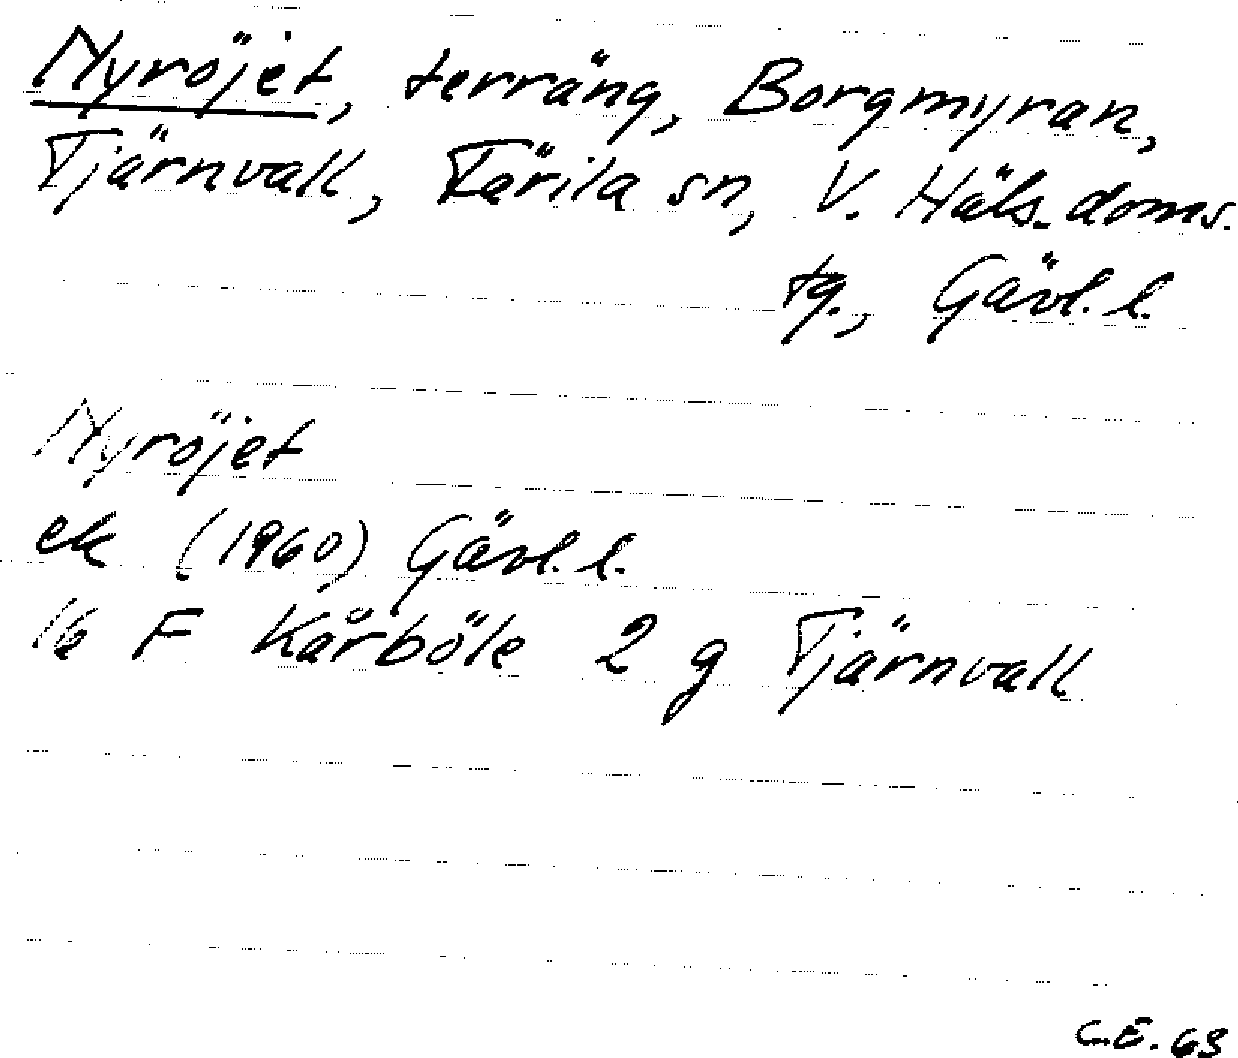 Nyröjet, terräng, Borgmyran,
Tjärnvall, Färila sn, V. Häls. doms.
tg., Gävl. l.
Nyröjet
ek (1960) Gävl. l.
16 F Kårböle 2 g Tjärnvall
C.E. 63